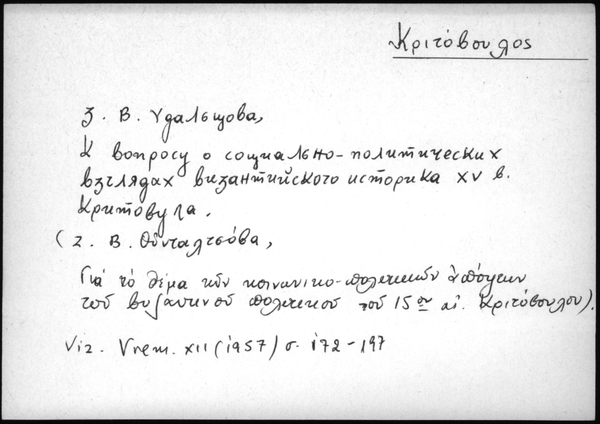 Κριτόβουλος
З. В. Удальцова,
К вопросу о социально-политических
взглядах византийского историка XV в.
Критовула.
(Ζ. Β. Οὐνταλτσόβα,
Γιά τό θέμα τῶν κοινωνικο-πολιτικῶν ἀπόψεων
τοῦ βυζαντινοῦ πολιτικοῦ τοῦ 15ου αἰ. Κριτόβουλου).
Viz. Vrem. XII (1957) σ. 172-197